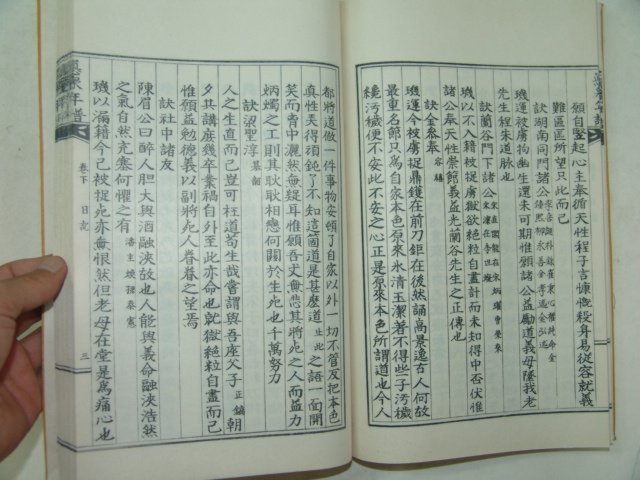 願自竪起心主奉循天性程子言慷慨殺身易從容就義
難區區所望只此而已
訣湖南同門諸公
璣運被虜拘幽生還未可期惟願諸公益勵道義毋墜我老
先生程朱道脉也
訣蘭谷門下諸公
璣以不入籍被捉虜獄欲絶粒自盡計而未知得中否伏惟
諸公奉天性崇館義益光蘭谷先生之正傳也
訣金參奉
璣運今被虜捉鼎鑊在前刀鉅在後然誦高景逸古人何故
最重名節只爲自家本色原來氷清玉潔著不得些子汚穢
纔汚穢便不安此不安之心正是原來本色所謂道也今人
都將道做一件事物安頓了自家以外一切不管反把本色
眞性弄得頑鈍了不知這箇道是甚麼道止此之語一面開
笑而胷中灑然無疑耳惟願吾丈無悲其將死之人而益力
炳燭之工則其耿耿相戀何關於生死也千萬努力
訣梁聖淳基韶
人之生直而已豈可枉道苟生哉嘗謂與吾座父子正鎬朝
夕其講庶幾卒業禍自外至此亦命也就獄絶粒自盡而已
惟願益勉德義以副將死人眷眷之望焉
訣社中諸友
陳眉公曰醉人胆大與酒融浹故也人能與義命融浹浩然
之氣自然充塞何懼之有
璣以滿籍今已被捉死亦無恨然但老母在堂是爲痛心也
卷下 日記 三